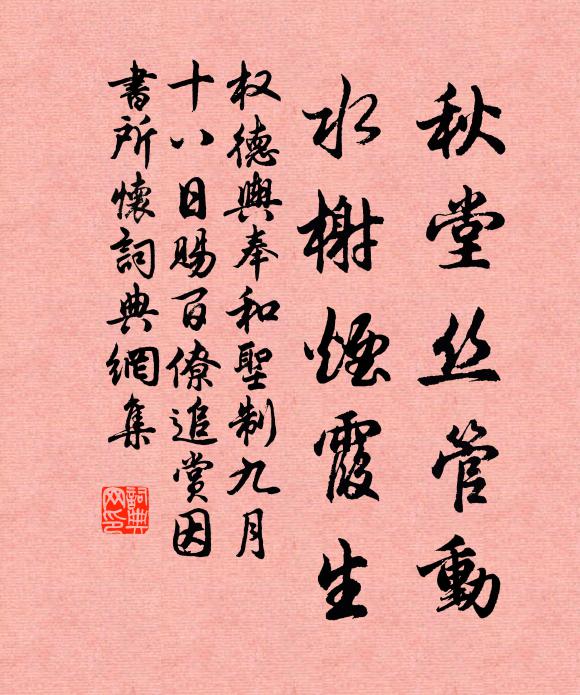 秋堂丝管動
水榭煙霞生
权德輿奉和聖制九月
十八日賜百僚追赏因
書所懷詞典網集
詞典
网印